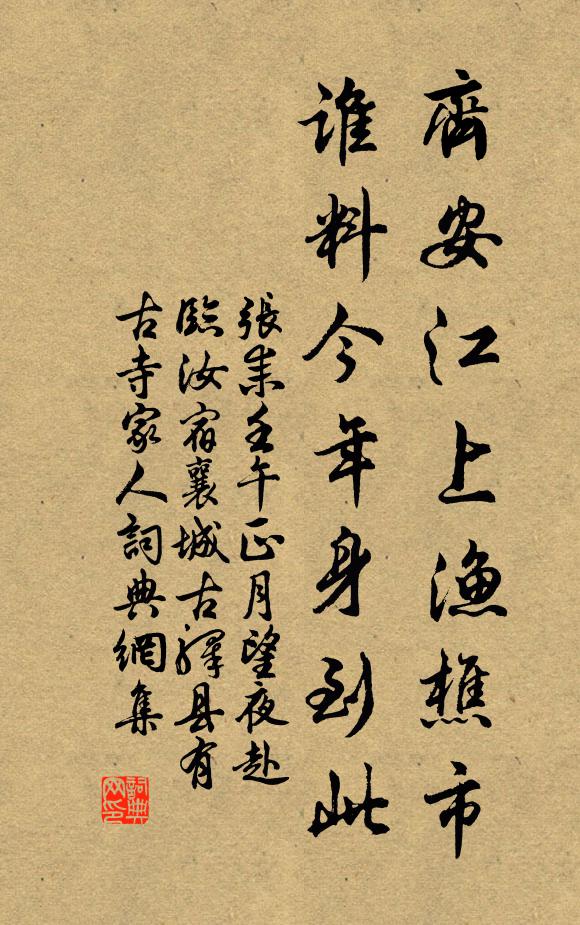 齊安江上漁樵市
誰料今年身到此
張耒壬午正月望夜赴
臨汝宿襄城古驛县有
古寺家人詞典網集
詞典
网印